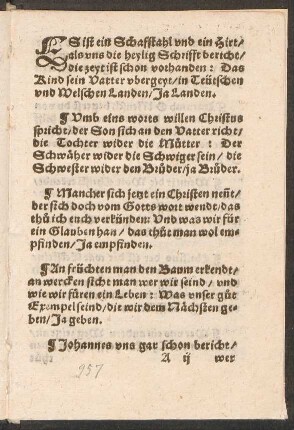 ES ist ein Schafstahl vnd ein Hirt/
als vns die heylig Schrifft bericht/
die zeyt ist schon vorhanden: Das
Kind sein Vatter vbergeyt/in Teütschen
vnd Welschen Landen/Ja Landen.
¶ Vmb eins worts willen Christus
spricht/der Son sich an den Vatter richt/
die Tochter wider die Mütter: Der
Schwäher wider die Schwiger sein/die
Schwester wider den Brüder/ja Brüder.
¶ Mancher sich yetz ein Christen neñt/
der sich doch vom Gotts wort wendt/das
thü ich euch verkünden: Vnd was wir für
ein Glauben han/das thüt man wol em-
pfinden/Ja empfinden.
¶ An früchten man den Baum erkendt/
an wercken sicht man wer wir seind/vnd
wie wir füren ein Leben: Was vnser güt
Exempel seind/die wir dem Nächsten ge-
ben/Ja geben.
¶ Johannes vns gar schon bericht/
A ij wer
257